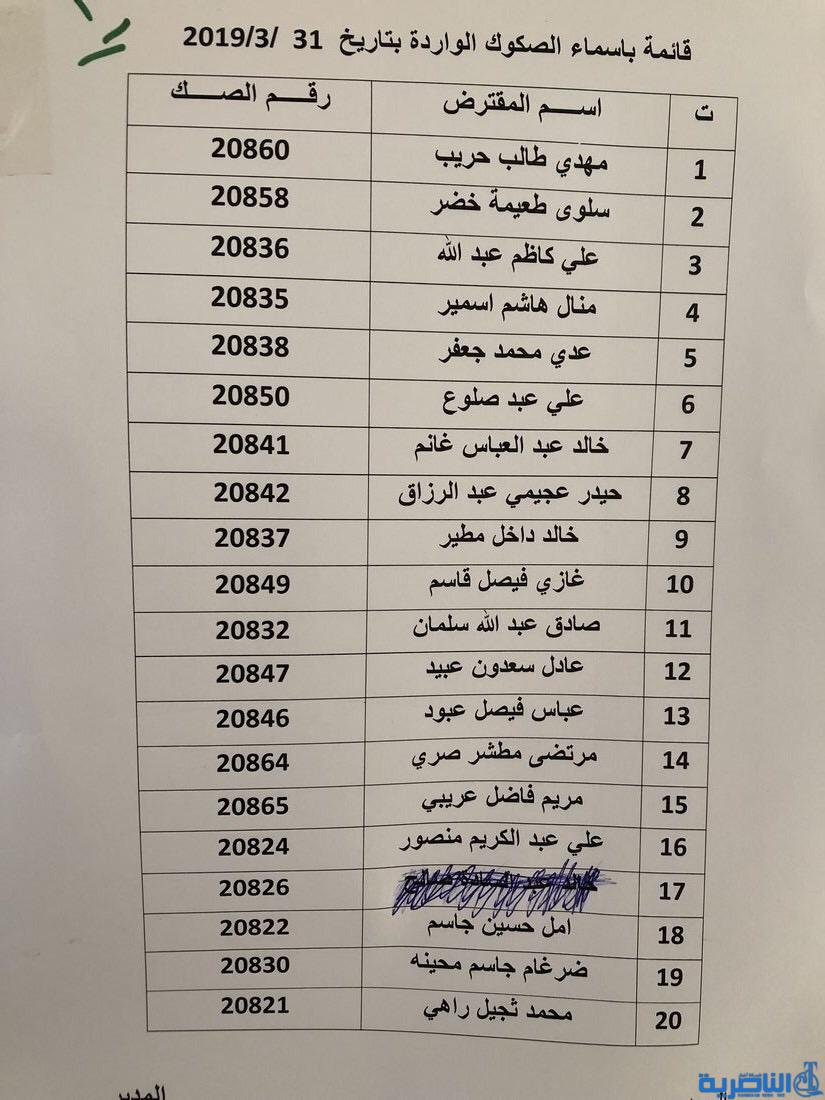 قائمة باسماء الصكوك الواردة بتاريخ 31 /2019/3
ت اســـم المقترض رقـــم الصـــك
1 مهدي طالب حريب 20860
2 سلوى طعيمة خضر 20858
3 علي كاظم عبد الله 20836
4 منال هاشم اسمير 20835
5 عدي محمد جعفر 20838
6 علي عبد صلوع 20850
7 خالد عبد العباس غانم 20841
8 حيدر عجيمي عبد الرزاق 20842
9 خالد داخل مطير 20837
10 غازي فيصل قاسم 20849
11 صادق عبد الله سلمان 20832
12 عادل سعدون عبيد 20847
13 عباس فيصل عبود 20846
14 مرتضى مطشر صري 20864
15 مريم فاضل عريبي 20865
16 علي عبد الكريم منصور 20824
17 20826
18 امل حسين جاسم 20822
19 ضرغام جاسم محينه 20830
20 محمد ثجيل راهي 20821
المدير
الناصرية